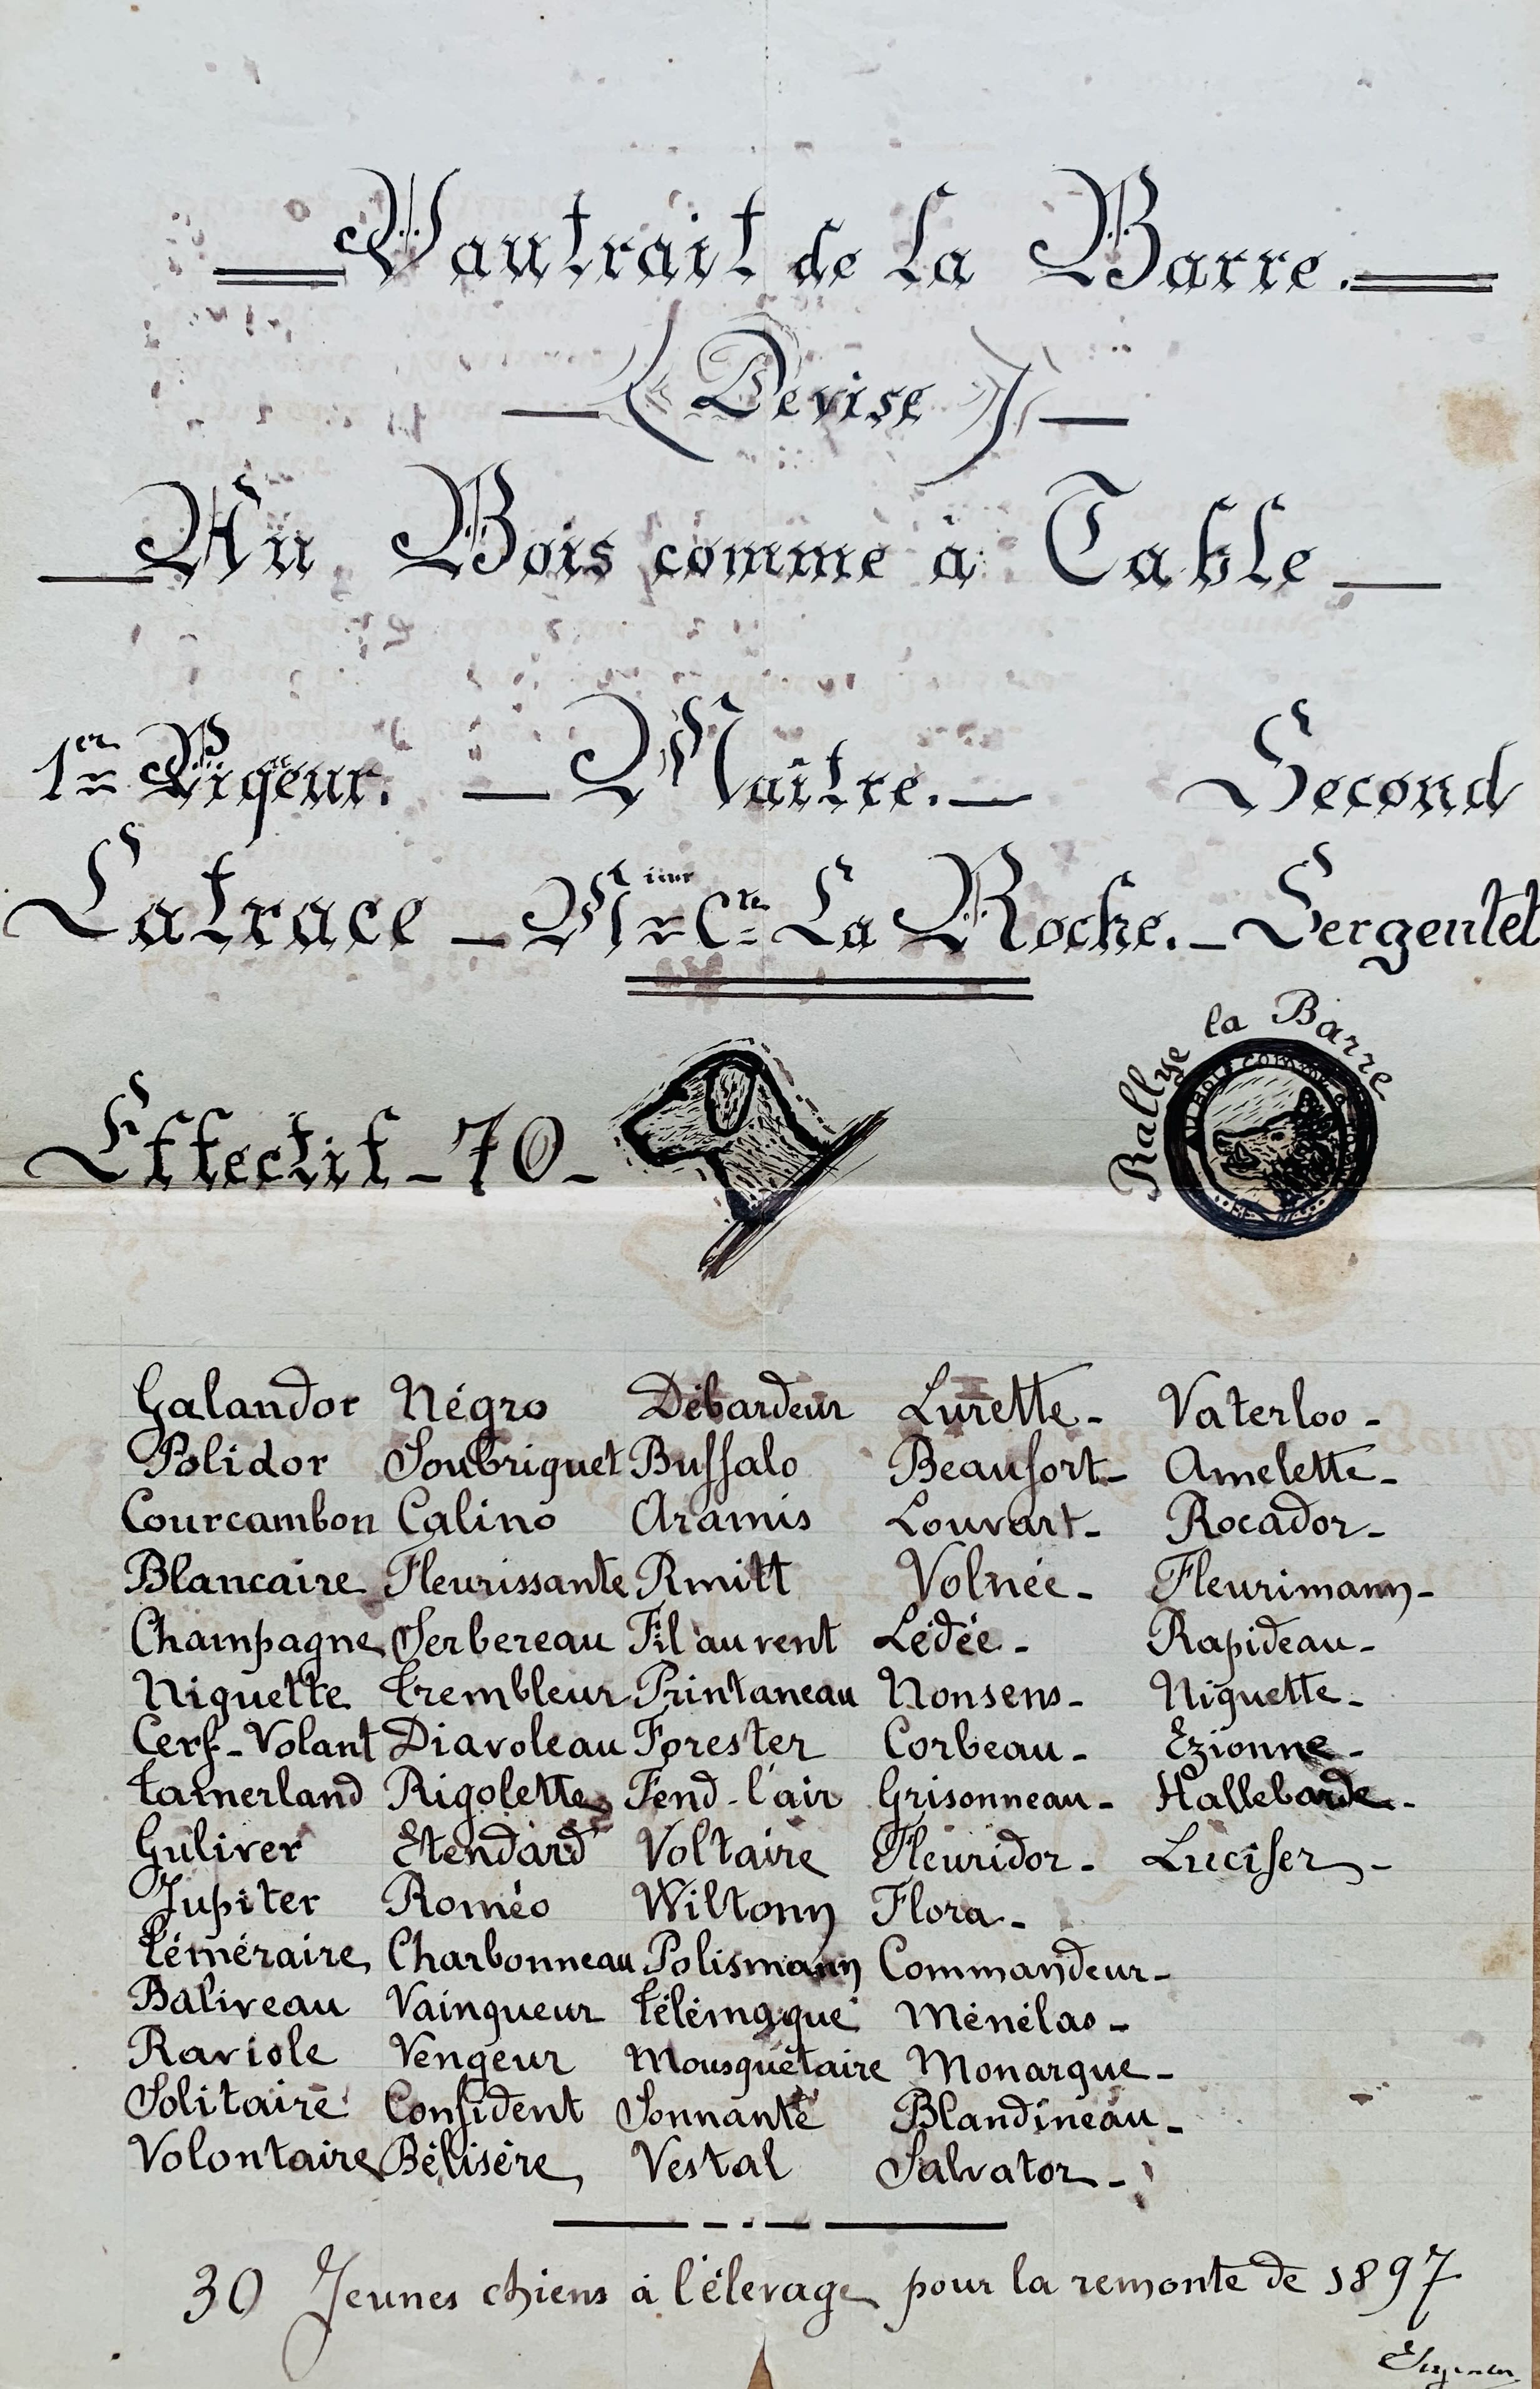 Vautrait de La Barre.
(« Devise »)
Au Bois comme à Table
1er Piqeur. - Maître. - Second
Latrace - Mr Cte La Roche. - Sergentet
Rallye la Barre
Au Bois comme à
Effectif - 70 -
Galandor Négro Débardeur Lurette - Vaterloo -
Polidor Soubriquet Buffalo Beaufort - Amelette -
Courcambon Calino Aramis Louvart - Rocador -
Blancaire Fleurissante Rmitt Volnée - Fleurimann -
Champagne Serbereau Fil au vent Lédée - Rapideau -
Niquette Trembleur Printaneau Nonsens - Niquette -
Cerf-Volant Diavoleau Forester Corbeau - Ezionne -
Tamerland Rigolette Fend-l'air Grisonneau - Hallebarde -
Guliver Etendard Voltaire Fleuridor - Lucifer -
Jupiter Roméo Wiltonn Flora -
Téméraire Charbonneau Polismann Commandeur -
Baliveau Vainqueur Télémaque Ménélas -
Raviole Vengeur Mousquetaire Monarque -
Solitaire Confident Sonnante Blandineau -
Volontaire Bélisère Vestal Salvator -
30 Jeunes chiens à l'élevage pour la remonte de 1897